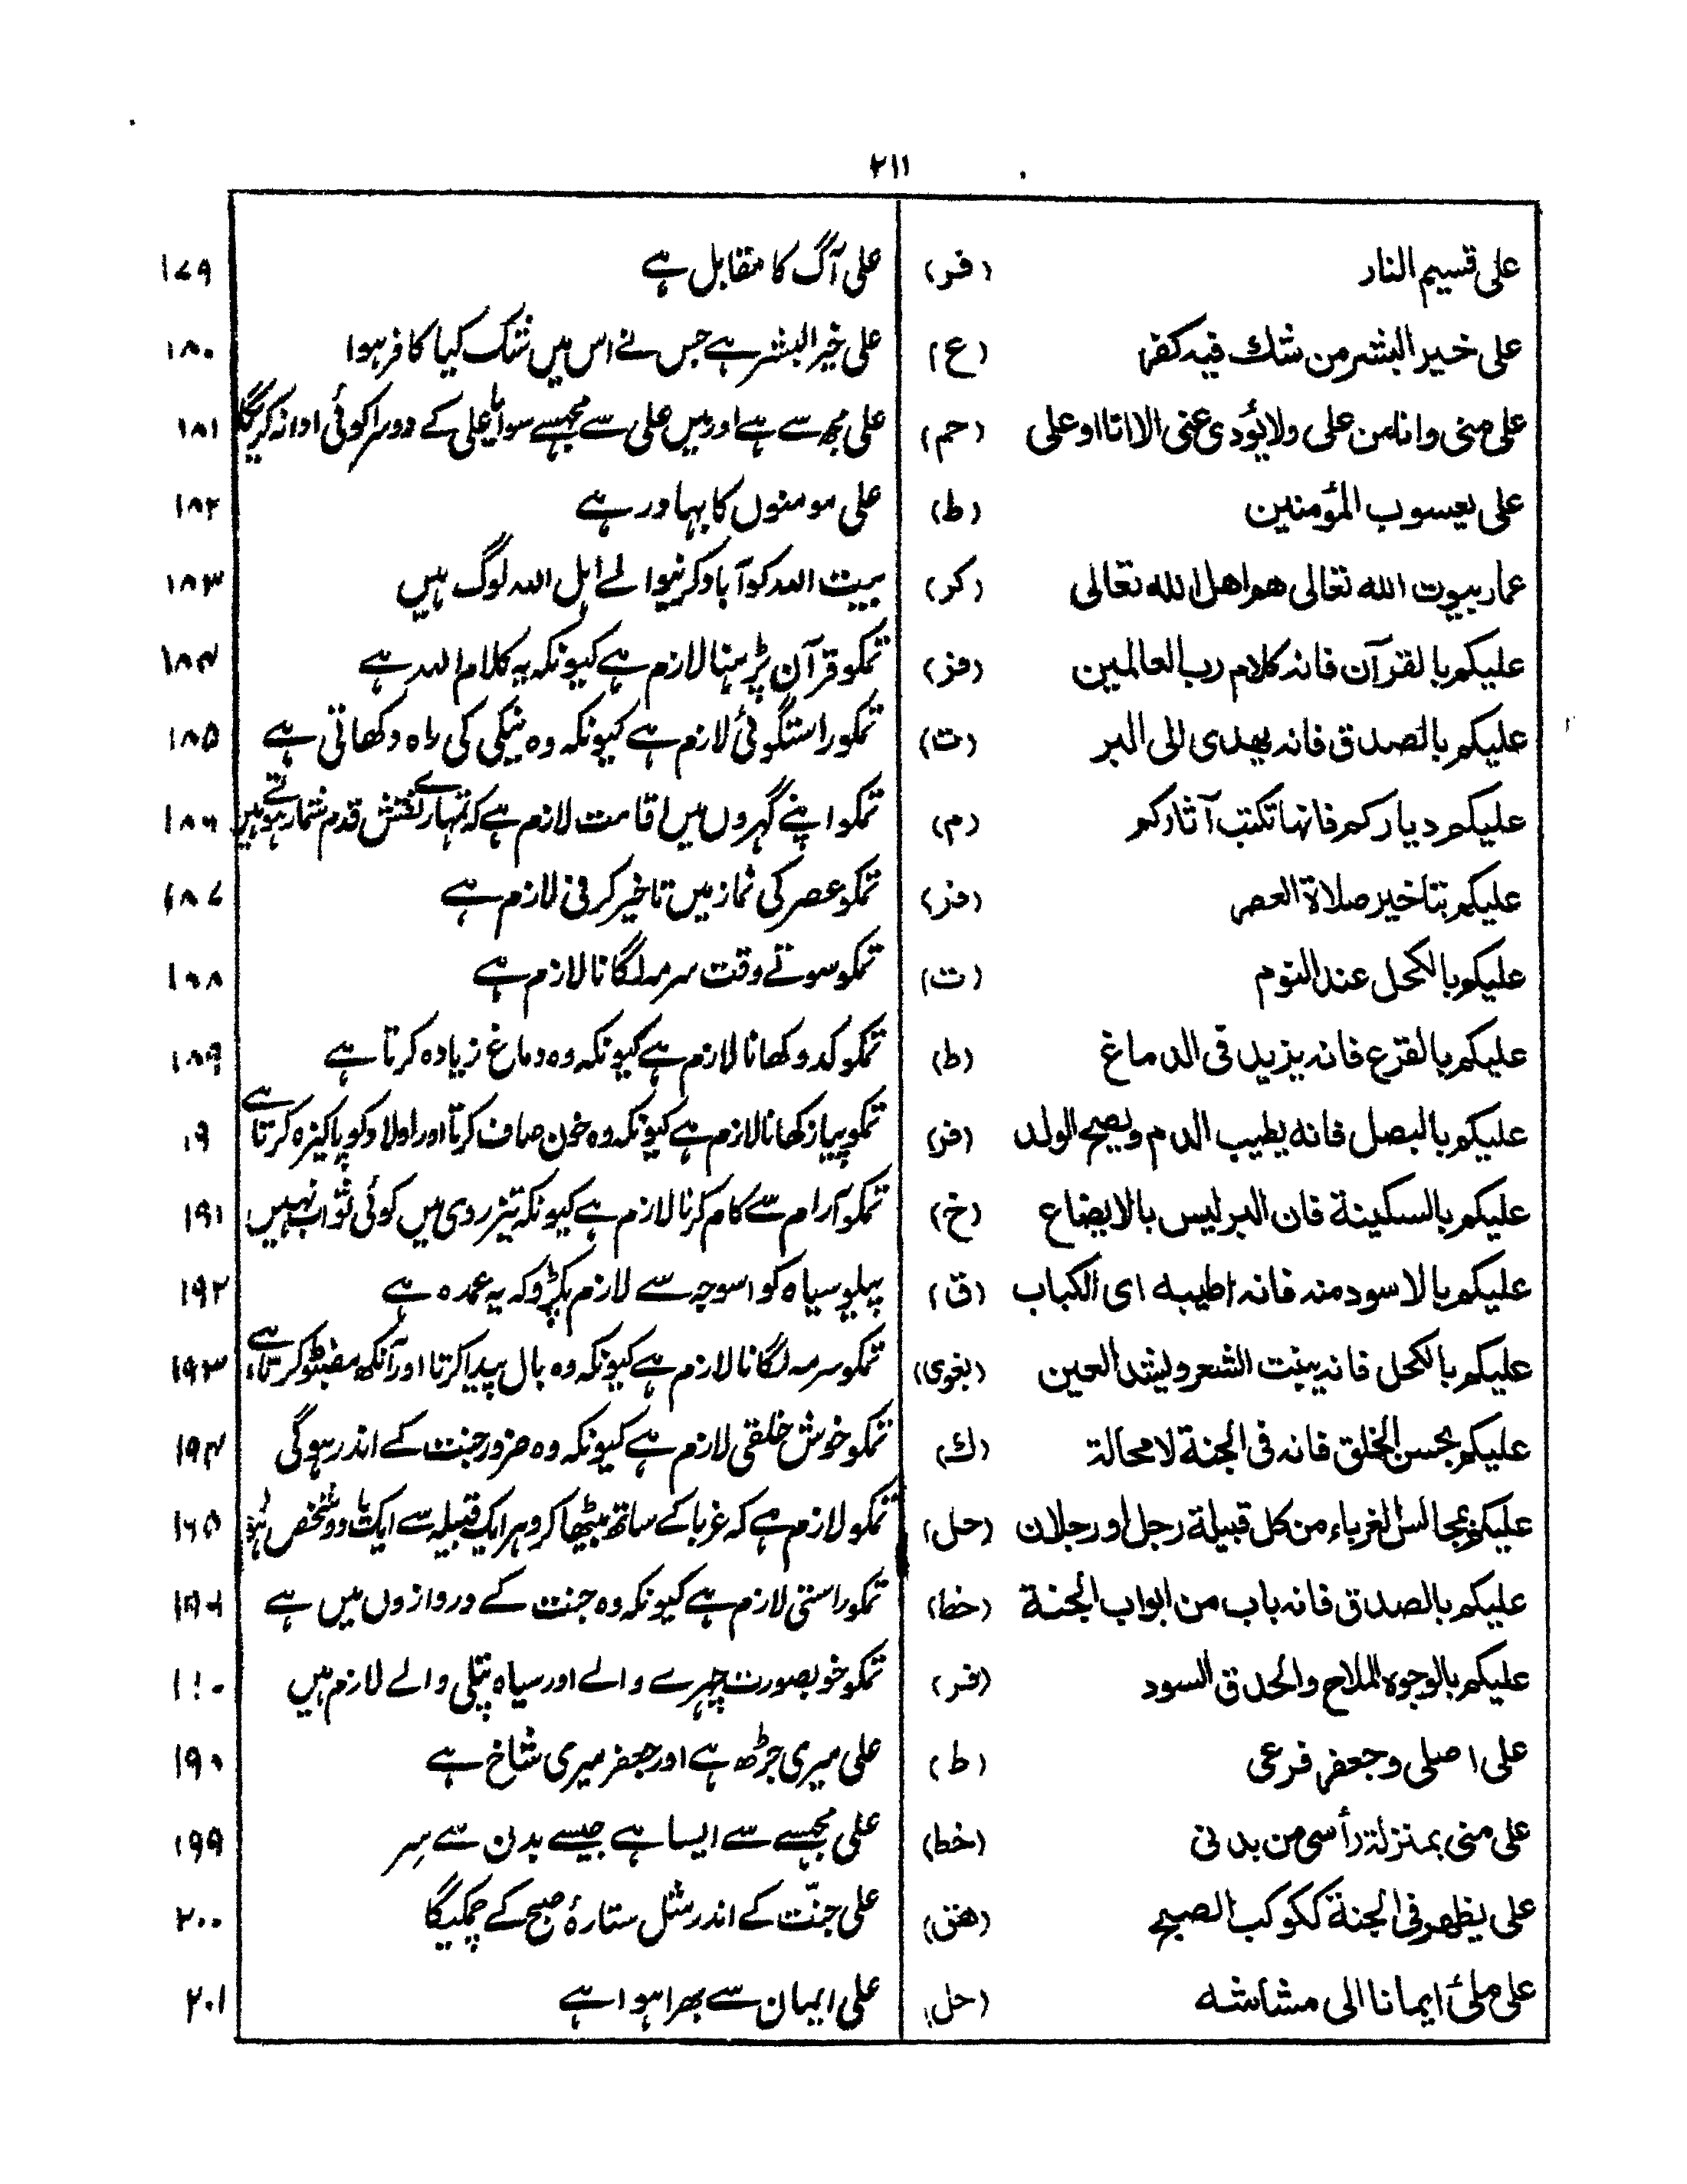 ۲۱۱
علی قسیم النار (فر) علی آگ کا مقابل ہے ۱۷۹
علی خیر البشر من شك فیه کفر (ع) علی خیر البشر ہے جس نے اس میں شک کیا کافر ہوا ۱۸۰
علی منی وانا من علی ولا یؤدی عنی الا انا او علی (حم) علی مجھ سے ہے اور میں علی سے مجہسے سوا یا علی کے دوسرا کوئی ادا نہ کریگا ۱۸۱
علی یعسوب المؤمنین (ط) علی مومنوں کا بہادر ہے ۱۸۲
عمار بیوت الله تعالی هم اهل الله تعالی (کر) بیت اللہ کو آباد کرنیوالے اہل اللہ لوگ ہیں ۱۸۳
علیکم بالقرآن فانه کلام رب العالمین (فر) تمکو قرآن پڑہنا لازم ہے کیونکہ یہ کلام اللہ ہے ۱۸۴
علیکم بالصدق فانه یهدی الی البر (ت) تمکو راستگوئی لازم ہے کیونکہ وہ نیکی کی راہ دکھاتی ہے ۱۸۵
علیکم دیارکم فانها تکتب آثارکم (م) تمکو اپنے گہروں میں اقامت لازم ہے کہ تمہارے نقش قدم شمار ہوتے ہیں ۱۸۶
علیکم بتاخیر صلاة العصر (فر) تمکو عصر کی نماز میں تاخیر کرنی لازم ہے ۱۸۷
علیکم بالکحل عند النوم (ت) تمکو سوتے وقت سرمہ لگانا لازم ہے ۱۸۸
علیکم بالقرع فانه یزید فی الدماغ (ط) تمکو کدو کھانا لازم ہے کیونکہ وہ دماغ زیادہ کرتا ہے ۱۸۹
علیکم بالبصل فانه یطیب الدم ویصح الولد (فر) تمکو پیاز کھانا لازم ہے کیونکہ وہ خون صاف کرتا اور اولاد کو پاکیزہ کرتا ہے ۱۹
علیکم بالسکینة فان البر لیس بالایضاع (خ) تمکو آرام سے کام کرنا لازم ہے کیونکہ تیز روی میں کوئی ثواب نہیں ۱۹۱
علیکم بالاسود منه فانه اطیبه ای الکباب (ق) پیلو سیاہ کو اسوجہ سے لازم پکڑو کہ یہ عمدہ ہے ۱۹۲
علیکم بالکحل فانه ینبت الشعر ویشد العین (بغوی) تمکو سرمہ لگانا لازم ہے کیونکہ وہ بال پیدا کرتا اور آنکھ مضبوط کرتا ہے ۱۹۳
علیکم بحسن الخلق فانه فی الجنة لا محالة (ك) تمکو خوش خلقی لازم ہے کیونکہ وہ ضرور جنت کے اندر ہوگی ۱۹۴
علیکم بمجالس الغرباء من کل قبیلة رجل او رجلان (حل) تمکو لازم ہے کہ غربا کے ساتھ بیٹھا کرو ہر ایک قبیلہ سے ایک یا دو شخص ۱۶۵
علیکم بالصدق فانه باب من ابواب الجنة (خط) تمکو راستی لازم ہے کیونکہ وہ جنت کے دروازوں میں ہے ۱۹۶
علیکم بالوجوه الملاح والحدق السود (فر) تمکو خوبصورت چہرے والے اور سیاہ پتلی والے لازم ہیں
علی اصلی وجعفر فرعی (ط) علی میری جڑھ ہے اور جعفر میری شاخ ہے ۱۹۸
علی منی بمنزلة رأسی من بدنی (خط) علی مجہسے سے ایسا ہے جیسے بدن سے سِر ۱۹۹
علی یظهر فی الجنة ککوکب الصبح (هق) علی جنّت کے اندر مثل ستارۂ صبح کے چمکیگا ۲۰۰
علی ملئ ایمانا الی مشاشه (حل) علی ایمان سے بھرا ہوا ہے ۲۰۱